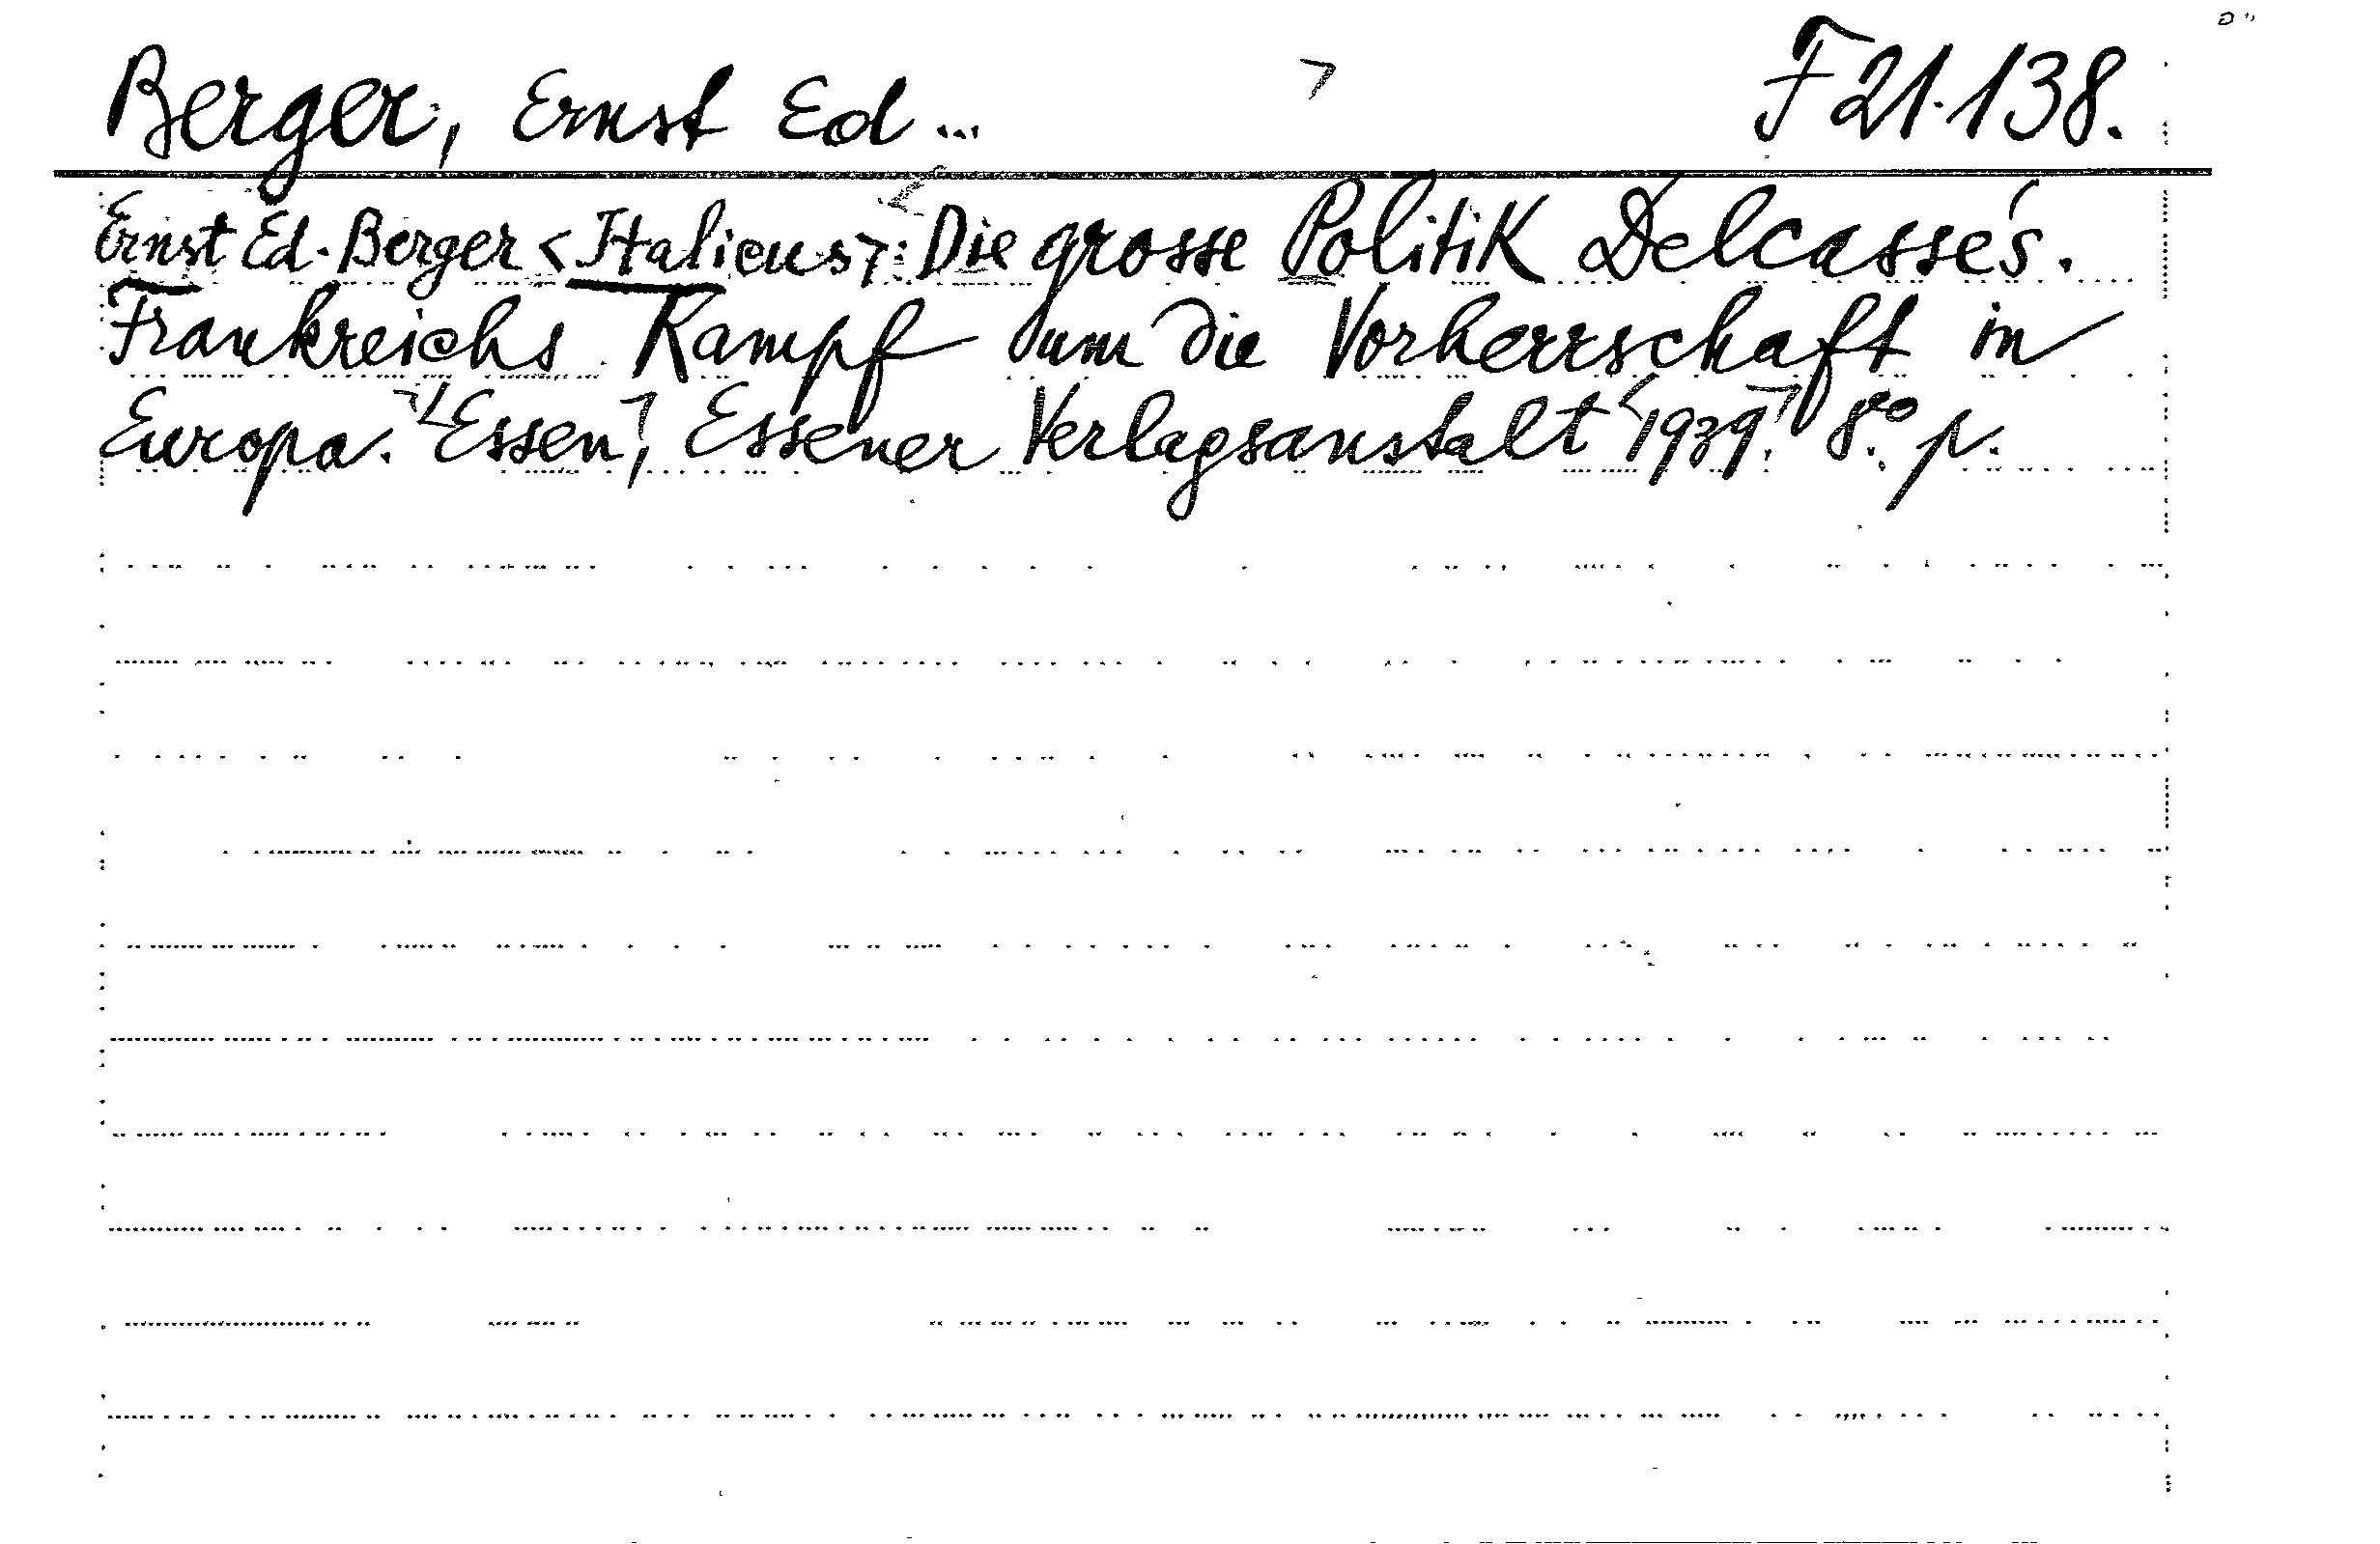 Berger, Ernst Ed... F 21.138.
Ernst Ed. Berger <Italicus>: Die grosse Politik Delcassé's.
Frankreichs Kampf um die Vorherrschaft in
Europa. <Essen>, Essener Verlagsanstalt <1939>. 8.° p.